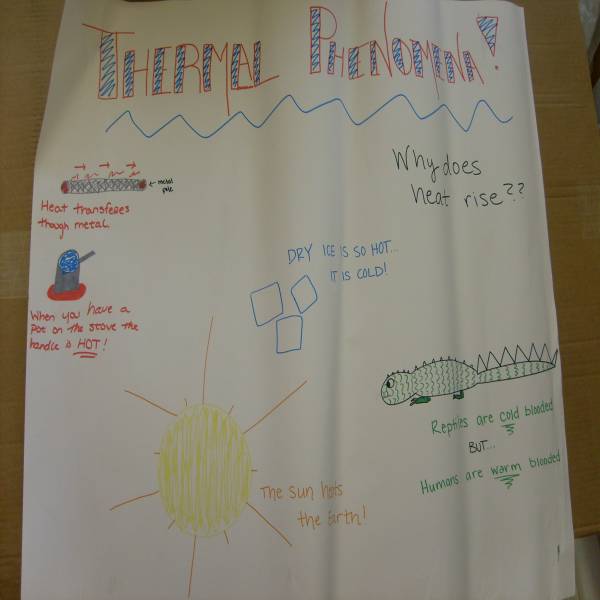 THERMAL PHENOMENA!
metal
pole
Heat transferes
though metal.
When you have a
pot on the stove the
handle is HOT!
Why does
heat rise??
DRY ICE IS SO HOT...
IT IS COLD!
Reptiles are cold blooded
BUT...
Humans are warm blooded
The sun hots
the Earth!